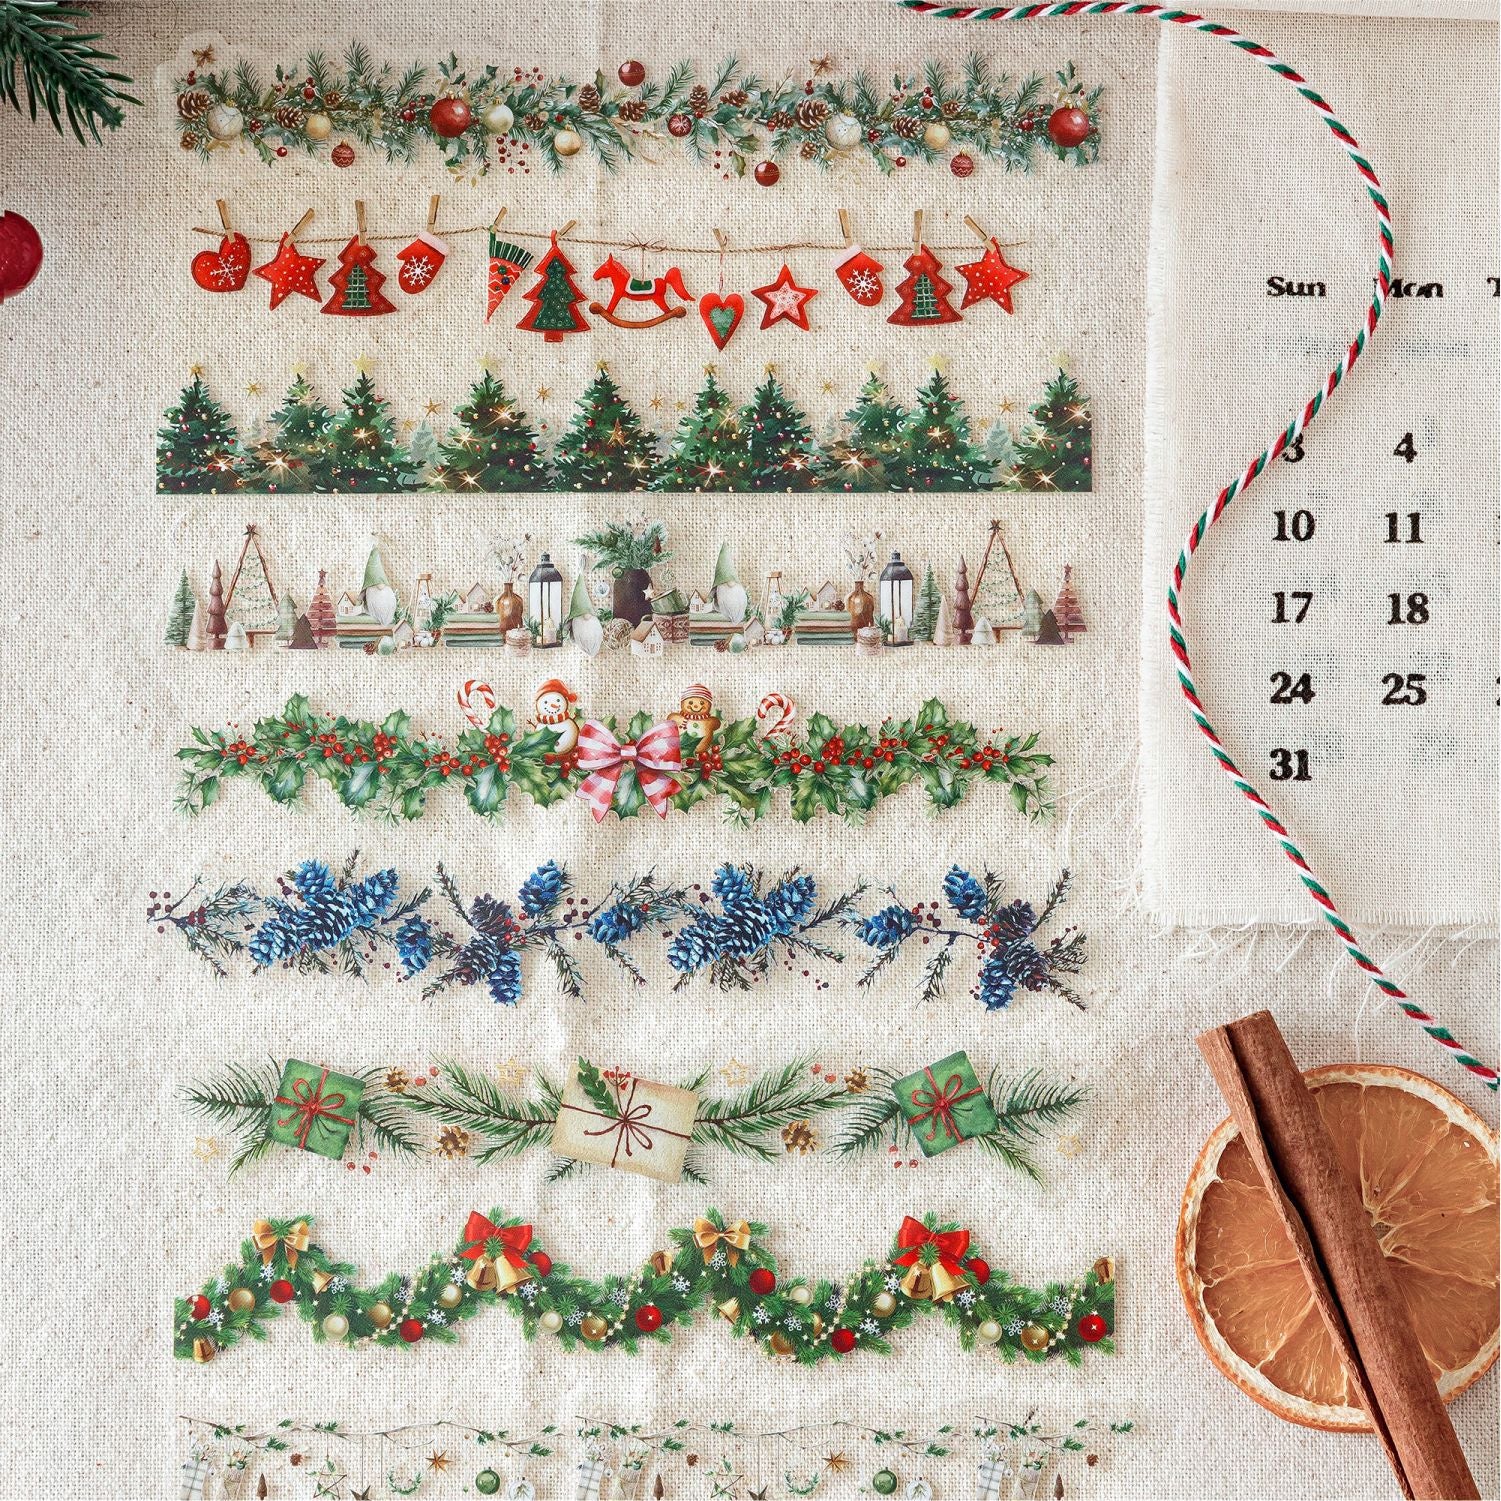 Sun Mon T
3 4
10 11
17 18
24 25
31